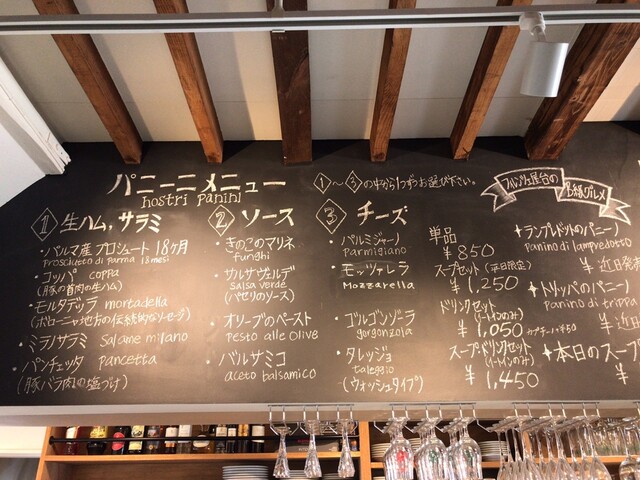 パニーニメニュー
nostri panini
①〜③の中から1つずつお選び下さい。
1 生ハム, サラミ
・パルマ産プロシュート 18ヶ月
Prosciutto di parma 18mesi
・コッパ coppa
(豚の首肉の生ハム)
・モルタデッラ mortadella
(ボローニャ地方の伝統的なソーセージ)
・ミラノサラミ Salame milano
・パンチェッタ pancetta
(豚バラ肉の塩づけ)
2 ソース
・きのこのマリネ
funghi
・サルサヴェルデ
salsa verde
(パセリのソース)
・オリーブのペースト
pesto alle olive
・バルサミコ
aceto balsamico
3 チーズ
・パルミジャーノ
parmigiano
・モッツァレラ
Mozzarella
・ゴルゴンゾーラ
gorgonzola
・タレッジョ
taleggio
(ウォッシュタイプ)
単品
¥850
スープセット(平日限定)
¥1,250
ドリンクセット
(イートインのみ)
¥1,050 カプチーノ+¥50
スープ・ドリンクセット
(イートインのみ)
¥1,450
フィレンツェ屋台の
B級グルメ
+ランプレドットのパニーノ
panino di lampredotto
¥近日発
+トリッパのパニーノ
panino di trippa
¥近
+本日のスープ
¥